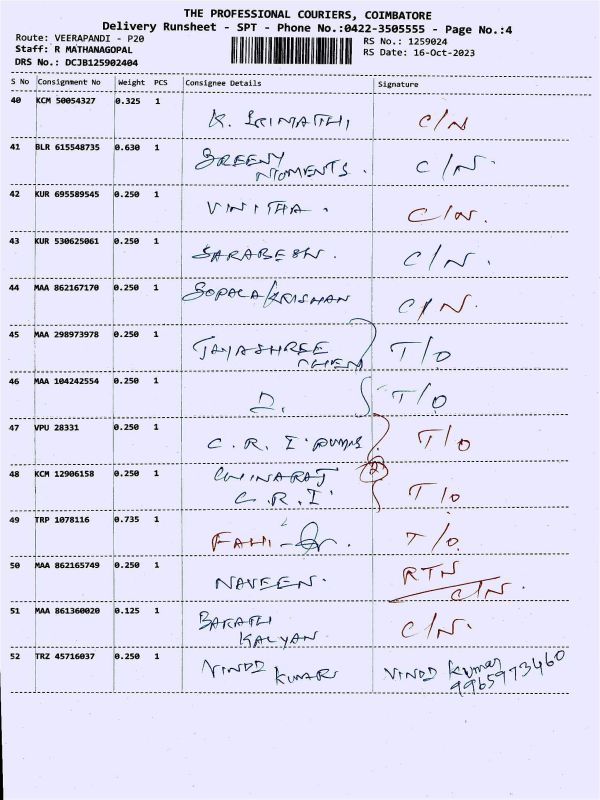 THE PROFESSIONAL COURIERS, COIMBATORE
Delivery Runsheet - SPT - Phone No.:0422-3505555 - Page No.:4
Route: VEERAPANDI - P20
Staff: R MATHANAGOPAL
DRS No.: DCJB125902404
RS No.: 1259024
RS Date: 16-Oct-2023
S No Consignment No Weight PCS Consignee Details Signature
40 KCM 50054327 0.325 1
K. SRIMATHI C/N
41 BLR 615548735 0.630 1
GREENY C/N.
MOMENTS.
42 KUR 695589545 0.250 1
VINITHA. C/N.
43 KUR 530625061 0.250 1
C/N.
44 MAA 862167170 0.250 1
GOPALAKRISHAN C/N.
45 MAA 298973978 0.250 1
JAYASHREE T/O
CHEM
46 MAA 104242554 0.250 1
D. T/O
47 VPU 28331 0.250 1
C.R.I PUMPS T/O
48 KCM 12906158 0.250 1
CHINARAJ
C.R.I T/O
49 TRP 1078116 0.735 1
T/O.
50 MAA 862165749 0.250 1
NAVEEN. RTN
C/N.
51 MAA 861360020 0.125 1
BARATH C/N.
KALYAN
52 TRZ 45716037 0.250 1
VINOD VINOD Kumar
KUMAR 9965973460